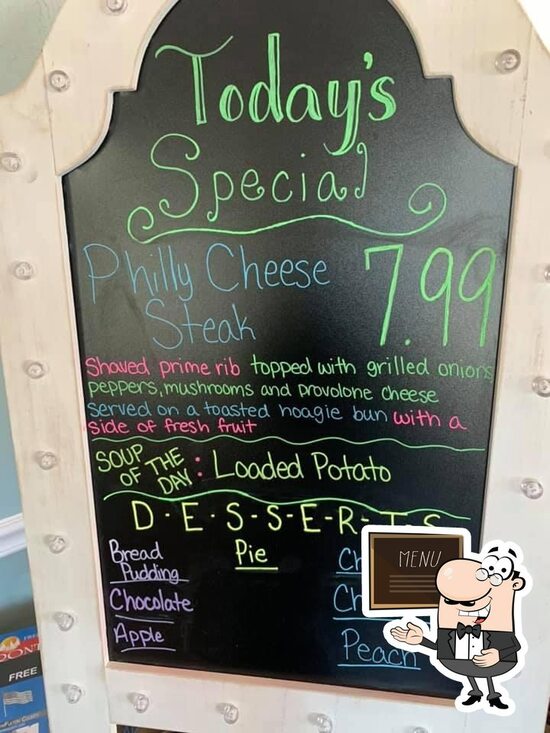 Today's
Special
Philly Cheese
Steak
7.99
Shaved prime rib topped with grilled onions
peppers, mushrooms and provolone cheese
served on a toasted hoagie bun with a
side of fresh fruit
SOUP
OF THE
DAY: Loaded Potato
D-E-S-S-E-R-T-S
Bread
Pudding
Pie
Chocolate
Apple
Peach
MENU
FREE